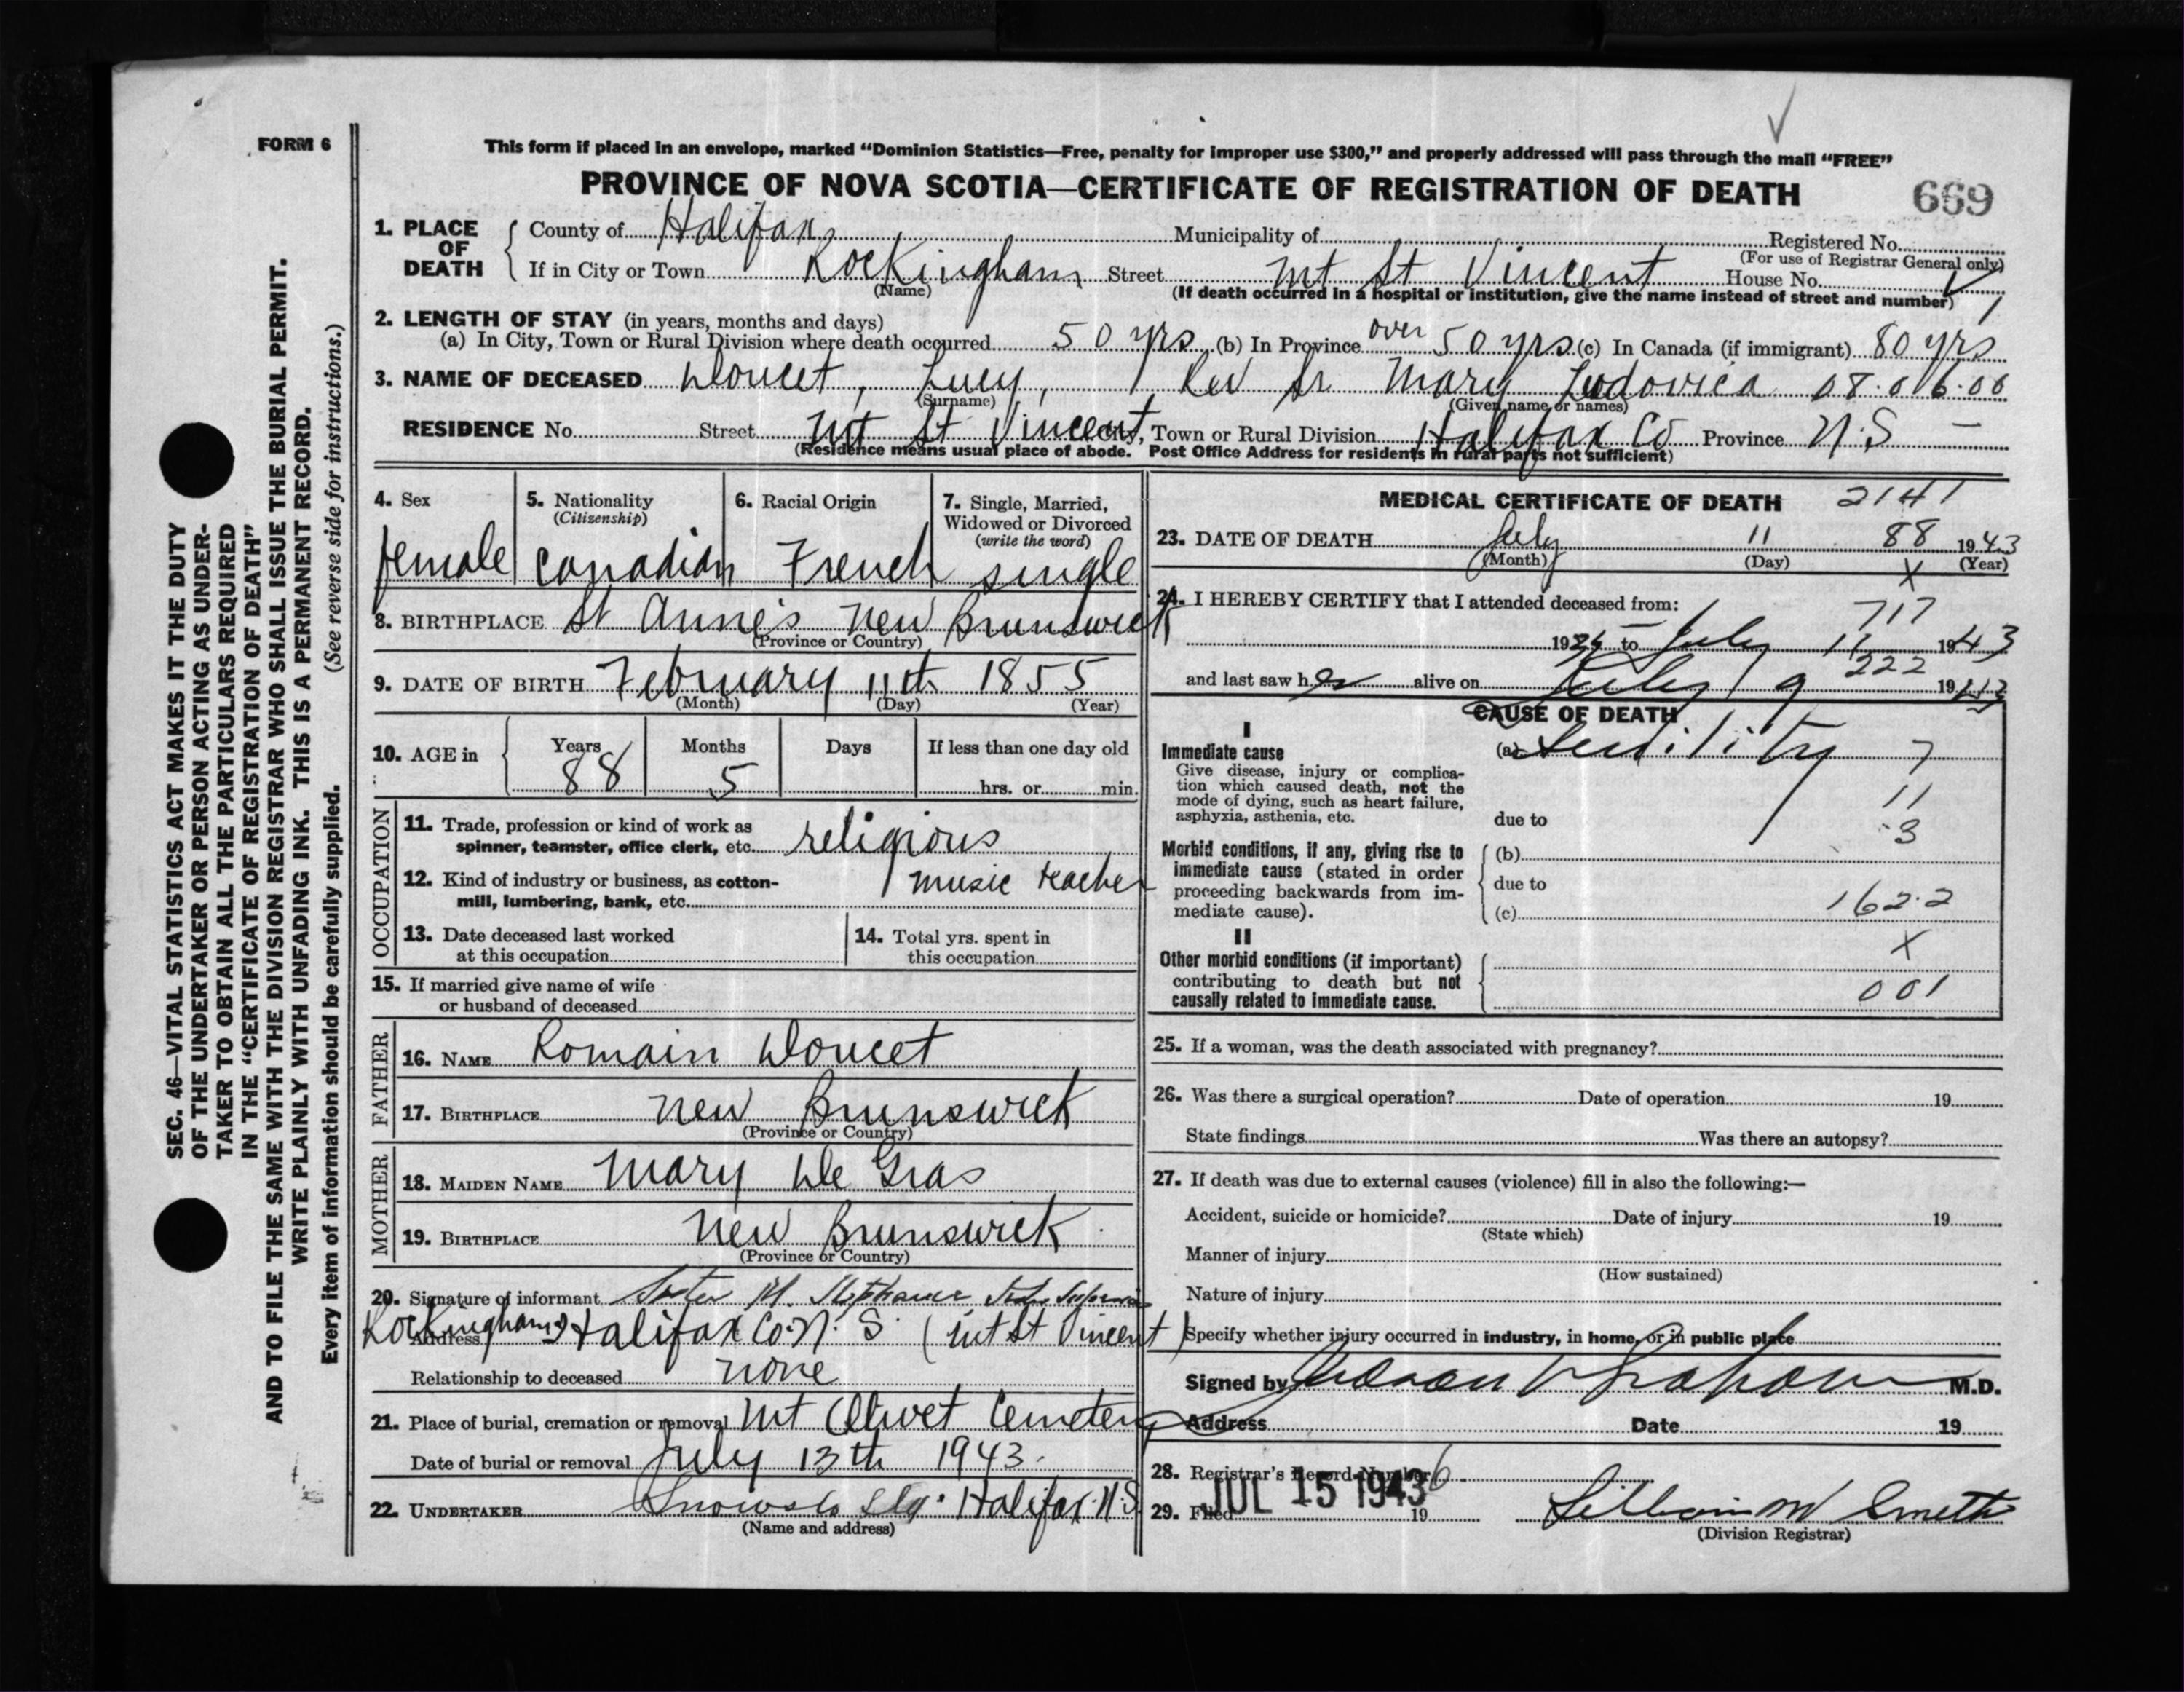 FORM 6
SEC. 46—VITAL STATISTICS ACT MAKES IT THE DUTY
OF THE UNDERTAKER OR PERSON ACTING AS UNDER-
TAKER TO OBTAIN ALL THE PARTICULARS REQUIRED
IN THE "CERTIFICATE OF REGISTRATION OF DEATH"
AND TO FILE THE SAME WITH THE DIVISION REGISTRAR WHO SHALL ISSUE THE BURIAL PERMIT.
WRITE PLAINLY WITH UNFADING INK. THIS IS A PERMANENT RECORD.
Every item of information should be carefully supplied. (See reverse side for instructions.)
This form if placed in an envelope, marked "Dominion Statistics—Free, penalty for improper use $300," and properly addressed will pass through the mail "FREE"
PROVINCE OF NOVA SCOTIA—CERTIFICATE OF REGISTRATION OF DEATH 669
1. PLACE OF DEATH County of Halifax Municipality of Registered No.
(For use of Registrar General only)
If in City or Town Rockingham Street Mt St Vincent House No.
(Name) (If death occurred in a hospital or institution, give the name instead of street and number) 1
2. LENGTH OF STAY (in years, months and days)
(a) In City, Town or Rural Division where death occurred 50 yrs (b) In Province over 50 yrs (c) In Canada (if immigrant) 80 yrs
3. NAME OF DECEASED Doucet, Lucy, Rev Sr Mary Ludovica 08.016.00
(Surname) (Given name or names)
RESIDENCE No. Street Mt St Vincent City, Town or Rural Division Halifax Co Province N.S —
(Residence means usual place of abode. Post Office Address for residents in rural parts not sufficient)
4. Sex female
5. Nationality (Citizenship) Canadian
6. Racial Origin French
7. Single, Married, Widowed or Divorced (write the word) single
8. BIRTHPLACE St Anne's New Brunswick
(Province or Country)
9. DATE OF BIRTH February 11th 1855
(Month) (Day) (Year)
10. AGE in Years 88 Months 5 Days If less than one day old
hrs. or min.
OCCUPATION
11. Trade, profession or kind of work as
spinner, teamster, office clerk, etc. religious
12. Kind of industry or business, as cotton-
mill, lumbering, bank, etc. music teacher
13. Date deceased last worked
at this occupation
14. Total yrs. spent in
this occupation
15. If married give name of wife
or husband of deceased
FATHER
16. NAME Romain Doucet
17. BIRTHPLACE New Brunswick
(Province or Country)
MOTHER
18. MAIDEN NAME Mary De Gras
19. BIRTHPLACE New Brunswick
(Province or Country)
20. Signature of informant Sister M.
Address Rockingham Halifax Co. N.S. (Mt St Vincent)
Relationship to deceased none
21. Place of burial, cremation or removal Mt Olivet Cemetery
Date of burial or removal July 13th 1943.
22. UNDERTAKER Snow & Co Ltd. Halifax N.S.
(Name and address)
MEDICAL CERTIFICATE OF DEATH 2141
23. DATE OF DEATH July 11 88 1943
(Month) (Day) (Year)
X
24. I HEREBY CERTIFY that I attended deceased from: 717
19 to July 11 1943
222
and last saw her alive on July 9 1943
CAUSE OF DEATH
I
Immediate cause (a) Senility 7
Give disease, injury or complica-
tion which caused death, not the
mode of dying, such as heart failure,
asphyxia, asthenia, etc.
due to 11
3
Morbid conditions, if any, giving rise to
immediate cause (stated in order
proceeding backwards from im-
mediate cause).
(b)
due to
(c) 162.2
II
X
Other morbid conditions (if important)
contributing to death but not
causally related to immediate cause.
001
25. If a woman, was the death associated with pregnancy?
26. Was there a surgical operation? Date of operation 19
State findings Was there an autopsy?
27. If death was due to external causes (violence) fill in also the following:—
Accident, suicide or homicide? Date of injury 19
(State which)
Manner of injury
(How sustained)
Nature of injury
Specify whether injury occurred in industry, in home, or in public place
Signed by Graham M.D.
Address Date 19
28. Registrar's Record Number 6
29. Filed JUL 15 1943 19 Lillian M Smith
(Division Registrar)